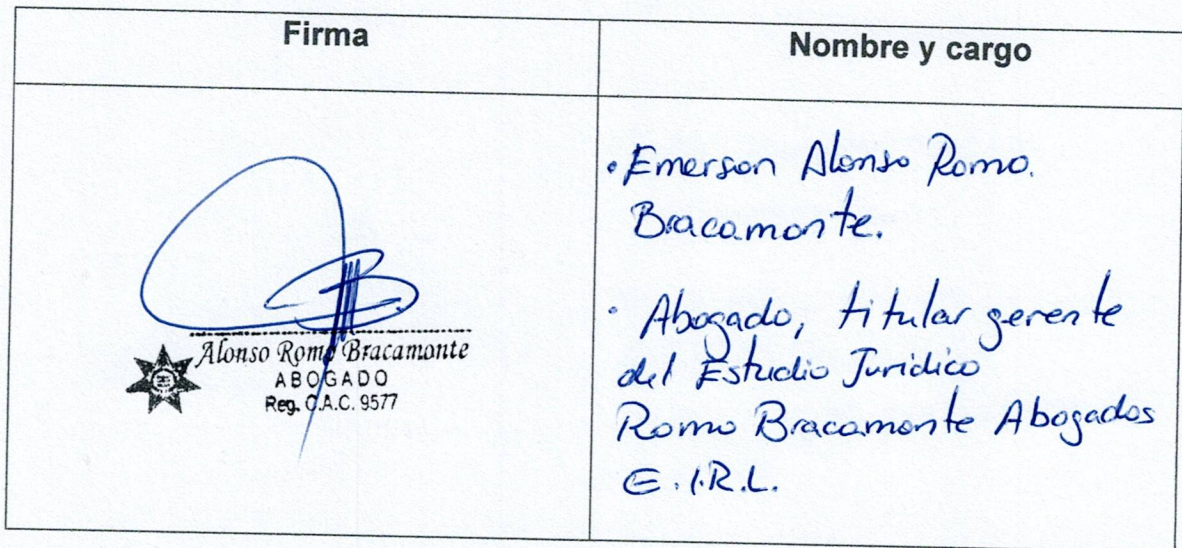 Firma
Nombre y cargo
Alonso Romo Bracamonte
ABOGADO
Reg. C.A.C. 9577
• Emerson Alonso Romo.
Bracamonte.
• Abogado, titular gerente
del Estudio Jurídico
Romo Bracamonte Abogados
E.I.R.L.